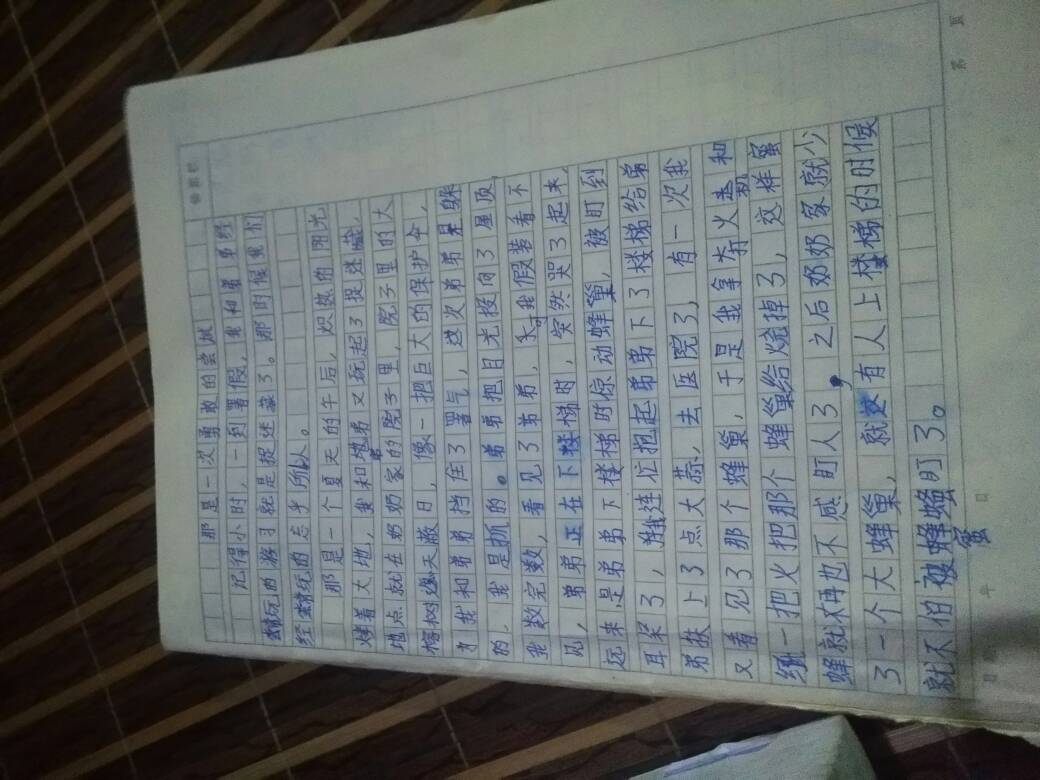 那是一次勇敢的尝试
记得小时,一到署假,我和弟弟经
常玩的游习就是捉迷藏了。那时候我们
经常玩的忘乎所人。
那是一个夏天的午后,炽热的阳光
烤着大地,我和弟弟又玩起了捉迷藏,
地点就在奶奶家的院子里,院子里的大
榕树遮天蔽日,像一把巨大的保护伞,
为我和弟弟挡住了署气,这次弟弟是躲
的,我是抓的。弟弟把目光投向了屋顶,
我数完数,看见了弟弟,可我假装看不
见,弟弟正在下楼梯时,突然哭了起来,
远来是弟弟下楼梯时惊动蜂巢,被盯到
耳朵了,我连忙抱起弟弟下了楼梯给弟
弟抹上了点大蒜,去医院了,有一次我
又看见了那个蜂巢,于是我拿夯火和
绳一把火把那个蜂巢给烧掉了,这样蜜
蜂就不再也不感盯人了,之后奶奶家就少
了一个大蜂巢,就这有人上楼梯的时候
就不怕被蜜蜂盯了。
年 月 日
第 页